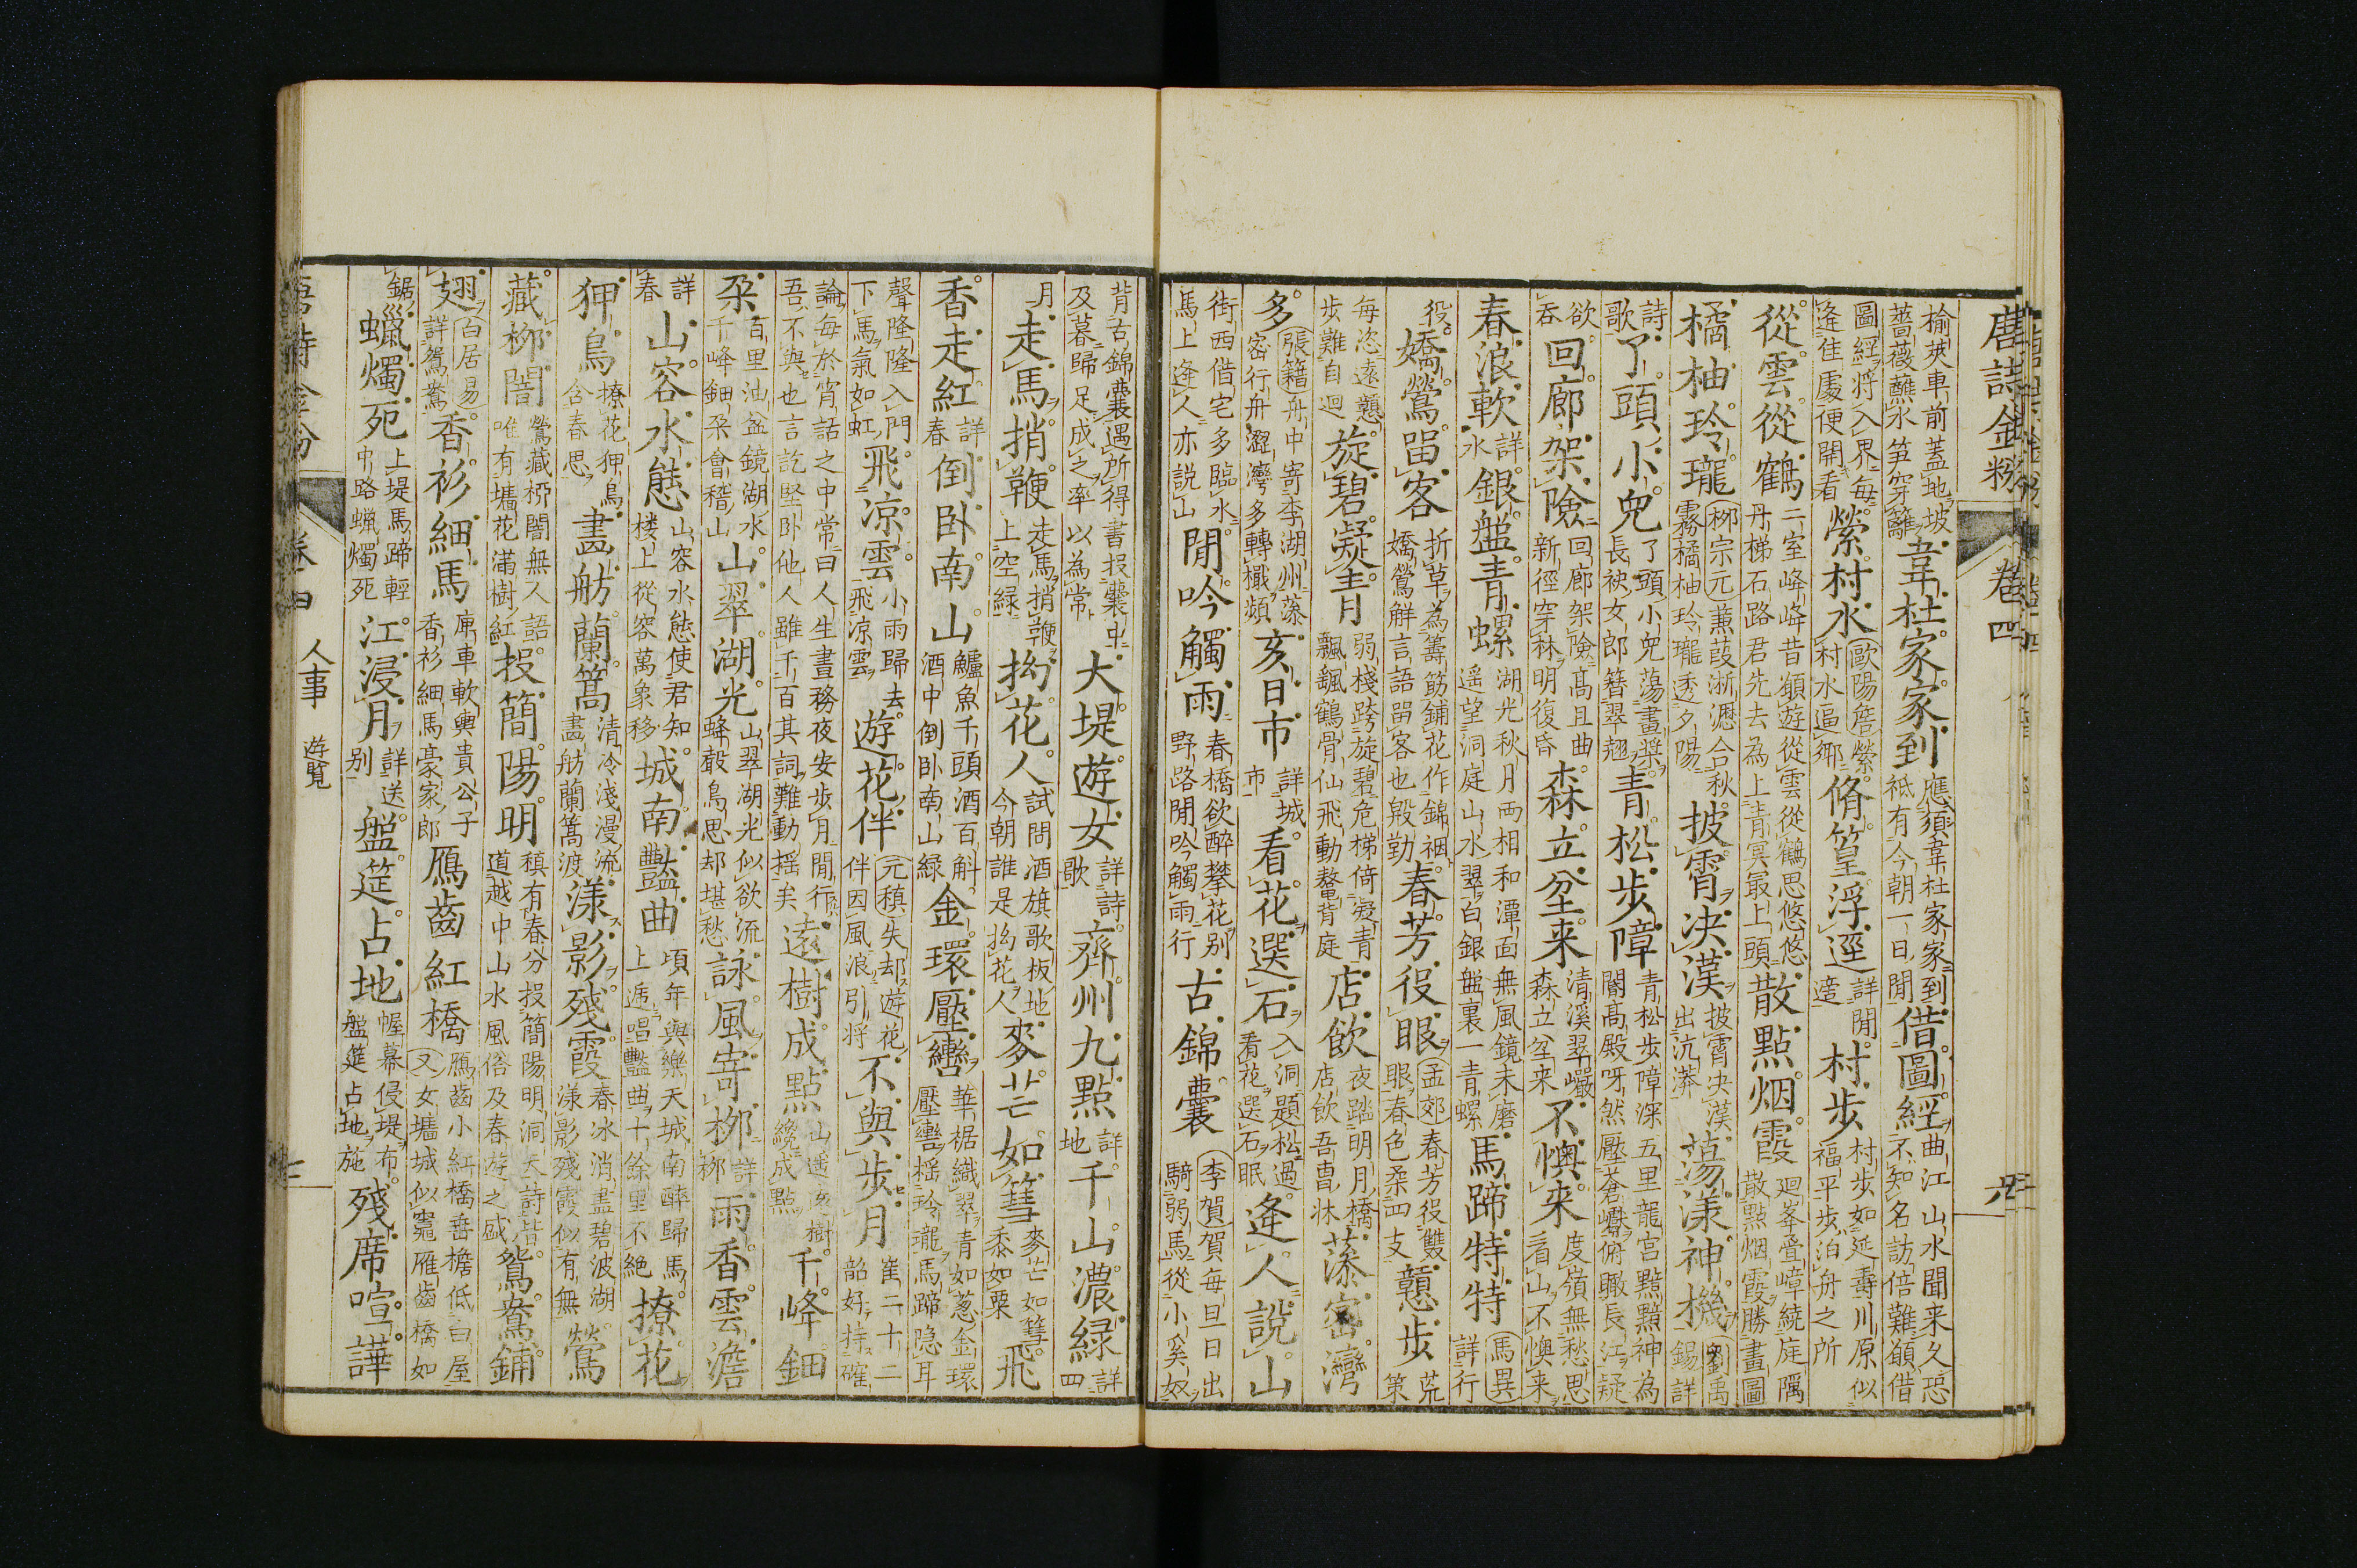 唐詩金粉 卷四
榆莢車前蓋地坡薔薇蘸水笋穿籬韋杜家家到應須韋杜家家到祗有今朝一日閒借圖經曲江山水聞来久恐不知名訪倍難願借
圖經將入界每逢佳處便開看縈村水歐陽詹縈村水逼鄉脩篁浮逕詳閒適村步村步如延壽川原似福平步泊舟之所
從雲從鶴二室峰峰昔願遊從雲從鶴思悠悠丹梯石路君先去為上青冥最上頭散點烟霞廻峯疊嶂繞庭隅散點烟霞勝畫圖
橘柚玲瓏柳宗元蒹葭淅瀝合秋霧橘柚玲瓏透夕陽披霄决漢披霄决漢出沆漭蕩漾神機劉禹錫詳
詩歌了頭小兒了頭小兒蕩畫槳長袂女郎簪翠翹青松步障青松步障深五里龍宮黯黯神為闇高殿呀然壓蒼巘俯瞰長江疑
欲吞回廊架險回廊架險髙且曲新徑穿林明復昏森立坌来清溪翠巖森立坌来不懊来度嶺無愁思看山不懊来
春浪軟詳水銀盤青螺湖光秋月両相和潭面無風鏡未磨遥望洞庭山水翠白銀盤裏一青螺馬蹄特特馬異詳行
役嬌鶯畱客折草為籌筯鋪花作錦裀嬌鶯解言語畱客也殷勤春芳役眼孟郊春芳役雙眼春色柔四支戇步荒策
每恣遠戇步難自迴旋碧凝青弱棧跨旋碧危梯倚凝青飄飄鶴骨仙飛動鼇背庭店飲夜踏明月橋店飲吾曹牀藻密灣
多張籍舟中寄李湖州藻密行舟澀灣多轉檝頻亥日市詳城市看花選石入洞題松過看花選石眠逢人說山
街西借宅多臨水馬上逢人亦説山閒吟觸雨春橋欲醉攀花别野路閒吟觸雨行古錦囊李賀賀每旦日出騎弱馬從小奚奴
背古錦囊遇所得書投囊中及暮歸足成之率以為常大堤遊女詳詩歌齊州九點詳地千山濃綠詳四
月走馬捎鞭走馬捎鞭上空綠拗花人試問酒旗歌板地今朝誰是拗花人麥芒如篲麥芒如篲黍如粟飛
香走紅詳春倒卧南山鱸魚千頭酒百斛酒中倒卧南山緑金環壓轡華裾織翠青如葱金環壓轡摇玲瓏馬蹄隐耳
聲隆隆入門下馬氣如虹飛涼雲小雨歸去飛涼雲遊花伴元稹失却遊花伴因風浪引將不與步月崔二十二韶好持確
論每於宵話之中常曰人生晝務夜安步月閒行吾不與也言訖堅卧他人雖千百其詞難動摇矣遠樹成點山遥遠樹纔成點千峰鈿
朶百里油盆鏡湖水千峰鈿朶會稽山山翠湖光山翠湖光似欲流蜂𣫏鳥思却堪愁詠風寄柳詳柳雨香雲澹
詳春山容水態山容水態使君知楼上從容萬象移城南豔曲頃年與樂天城南醉歸馬上逓唱豔曲十餘里不絶撩花
狎鳥撩花狎鳥含春思畫舫蘭篙清冷淺漫流畫舫蘭篙渡漾影殘霞春冰消盡碧波湖漾影殘霞似有無鶯
藏柳闇鶯藏柳闇無人語唯有墻花滿樹紅投簡陽明稹有春分投簡陽明洞天詩皆道越中山水風俗及春遊之盛鴛鴦鋪
翅白居易詳鴛鴦香衫細馬庳車軟轝貴公子香衫細馬豪家郎鴈齒紅橋鴈齒小紅橋垂檐低白屋又女墻城似竈雁齒橋如
鋸蠟燭死上堤馬蹄輕中路蠟燭死江浸月詳送别盤筵占地幄幕侵堤布盤筵占地施殘席喧譁
唐詩金粉 卷四 人事 遊覧 三